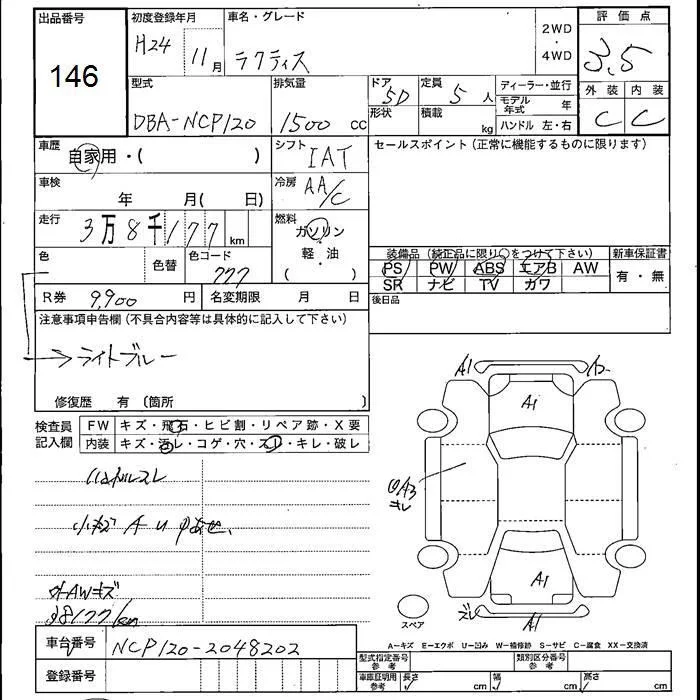 出品番号
146
初度登録年月
H24 11月
車名・グレード
ラクティス
2WD
・
4WD
評価点
3.5
型式
DBA-NCP120
排気量
1500 cc
ドア
5D
形状
定員
5 人
積載
kg
ディーラー・並行
モデル年式 年
ハンドル 左・右
外装 内装
C C
車歴
自家用・( )
シフト
IAT
セールスポイント(正常に機能するものに限ります)
車検
年 月( 日)
冷房
AA/C
走行
3万8千177 km
燃料
ガソリン
・
軽・油
( )
色
色替
色コード
777
装備品(純正品に限り○をつけて下さい)
新車保証書
PS PW ABS エアB AW
SR ナビ TV カワ
有・無
R券 9,900 円
名変期限 月 日
後日品
注意事項申告欄(不具合内容等は具体的に記入して下さい)
ライトブルー
修復歴 有(箇所
検査員記入欄
FW キズ・飛石・ヒビ割・リペア跡・X要
内装 キズ・汚レ・コゲ・穴・スレ・キレ・破レ
ハンドルスレ
小キズ A U
AWキズ
38177km
A1
A1
A3
キレ
A1
ズレ
A1
スペア
A-キズ E-エクボ U-凹み W-補修跡 S-サビ C-腐食 XX-交換済
車台番号
NCP120-2048202
登録番号
型式指定番号
参考
類別区分番号
参考
車庫証明用
参考
長さ cm
幅 cm
高さ cm